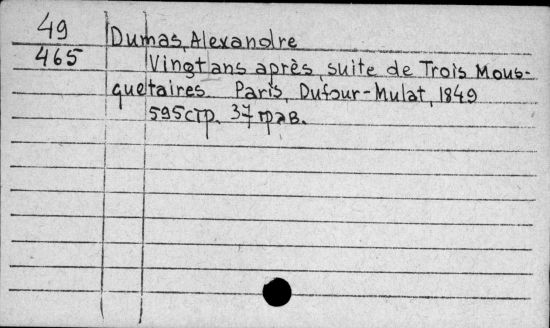 49 Dumas, Alexandre
465 Vingt ans après, suite de Trois Mous-
quetaires. Paris, Dufour-Mulat, 1849
595 стр. 37 грав.